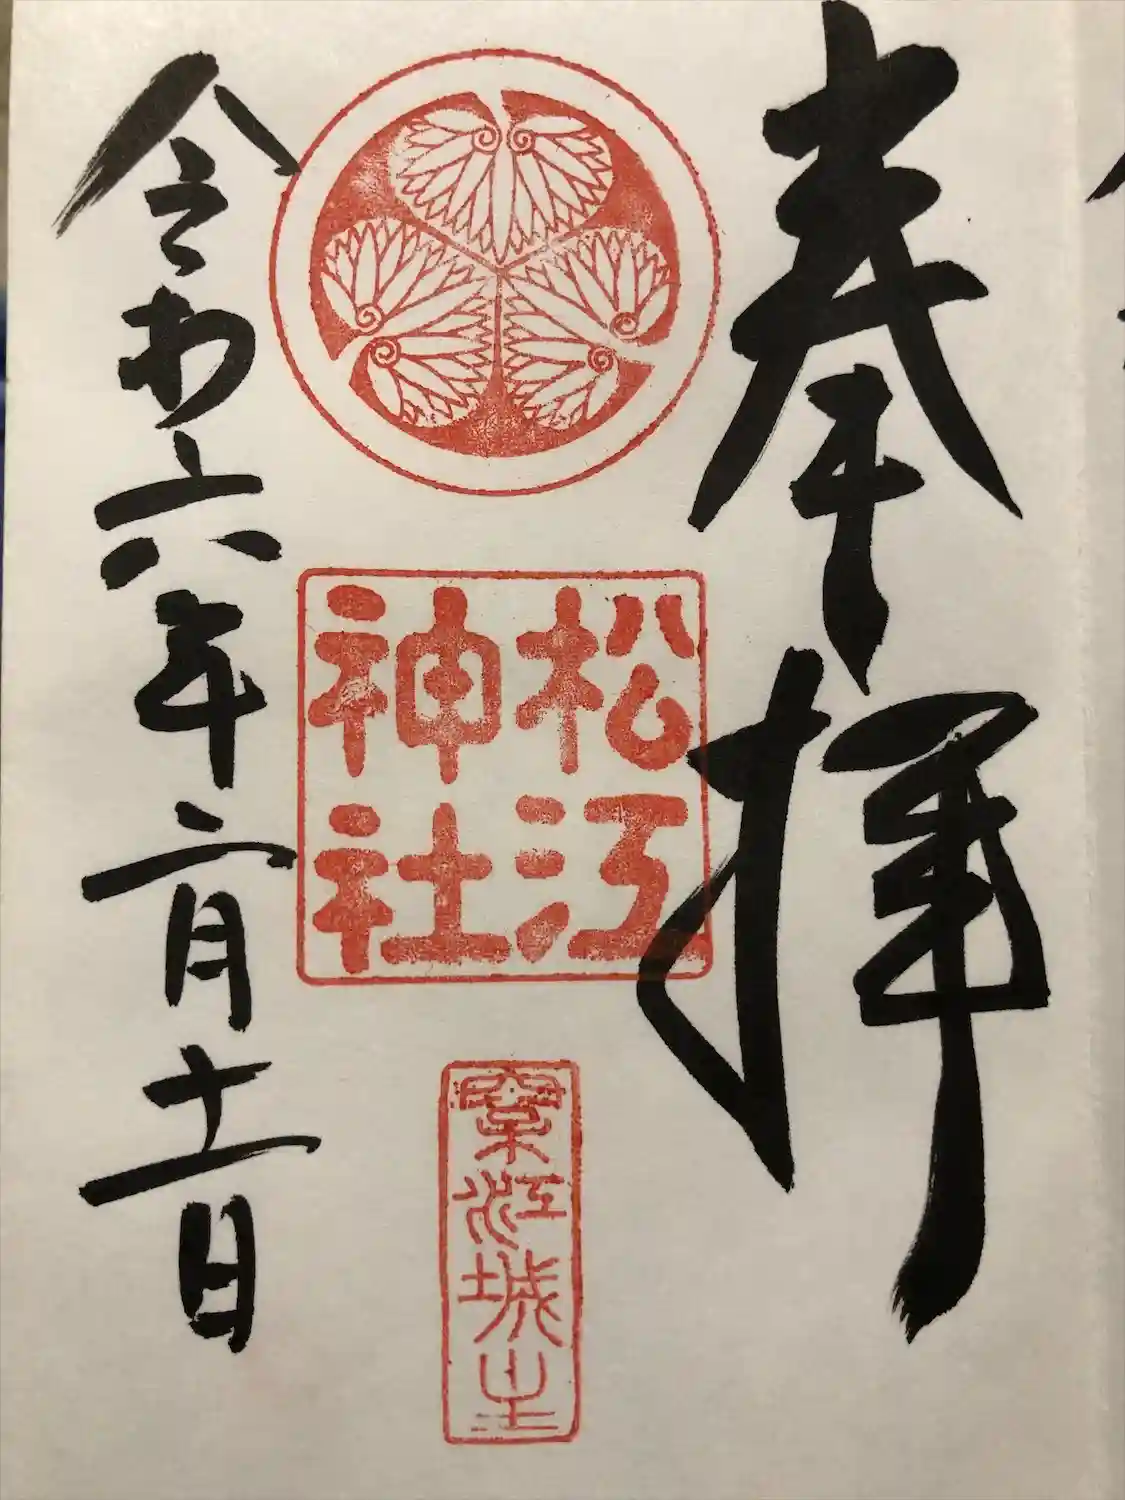 奉拝
松江神社
江城
令和六年二月十一日